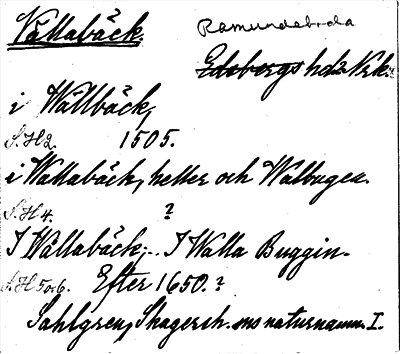 Vallabäck. Ramundeboda
Edsbergs hd Nrk.
i Wällbäck,
S.H 2. 1505.
i Wallabäck, heller och Walbugea.
S.H 4. ?
I Wallabäck; .. I Walla Buggin.
S.H 5 o 6. Efter 1650.?
Sahlgren, Skagersh. ms naturnamn I.